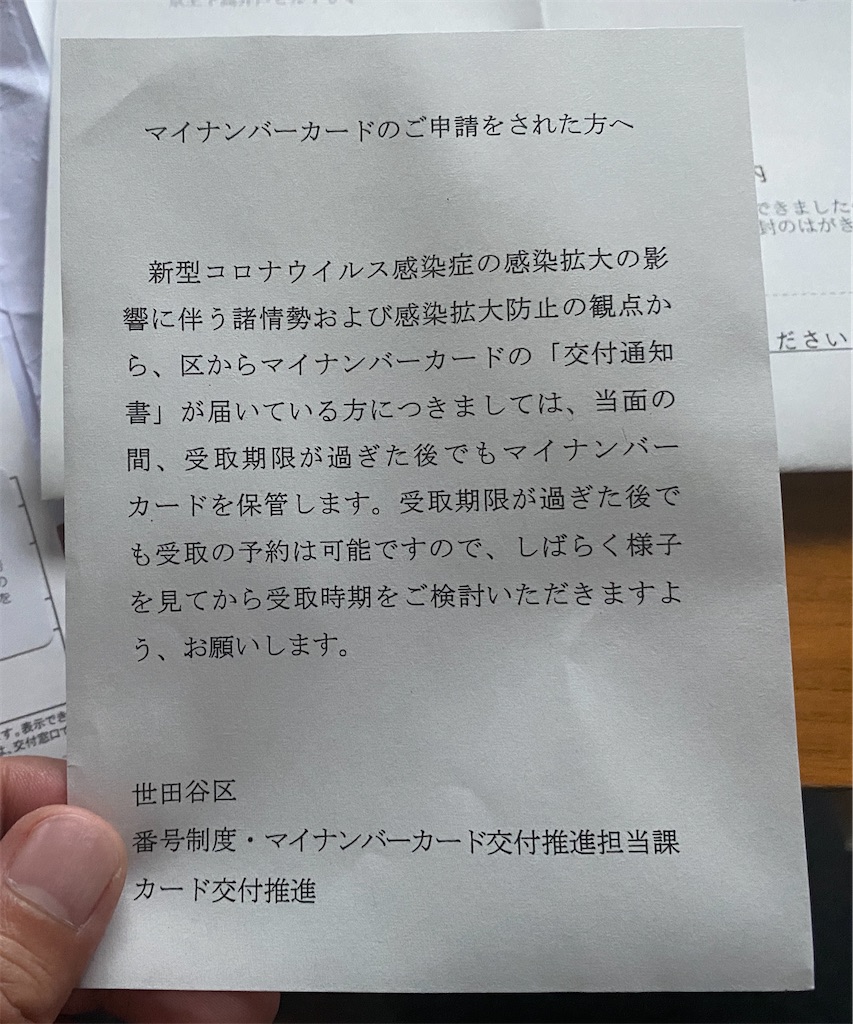 マイナンバーカードのご申請をされた方へ
新型コロナウイルス感染症の感染拡大の影
響に伴う諸情勢および感染拡大防止の観点か
ら、区からマイナンバーカードの「交付通知
書」が届いている方につきましては、当面の
間、受取期限が過ぎた後でもマイナンバー
カードを保管します。受取期限が過ぎた後で
も受取の予約は可能ですので、しばらく様子
を見てから受取時期をご検討いただきますよ
う、お願いします。
世田谷区
番号制度・マイナンバーカード交付推進担当課
カード交付推進
内
できました
封のはがき
ださい
の
を
す。表示でき
は、交付窓口で